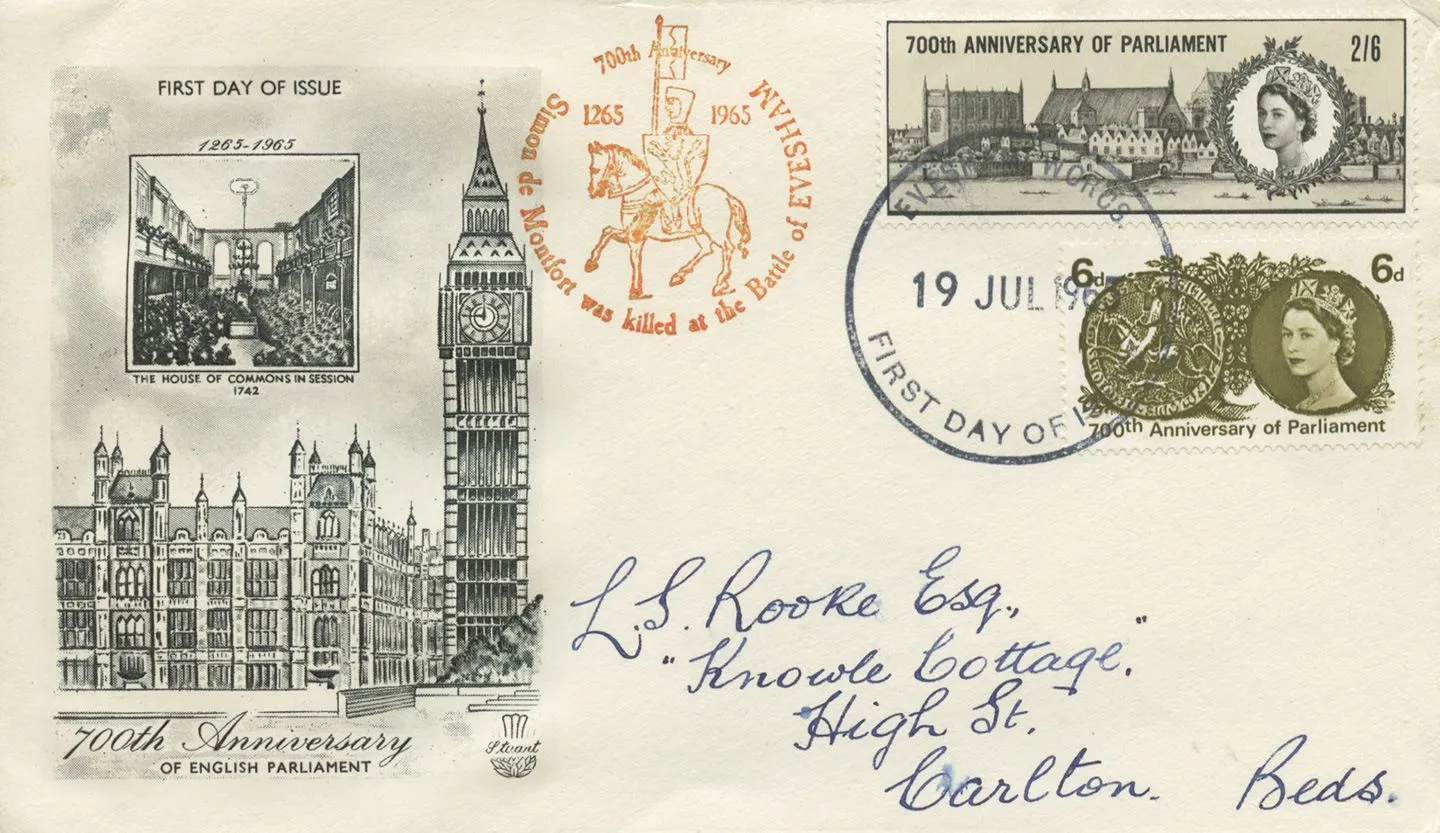 FIRST DAY OF ISSUE
1265-1965
THE HOUSE OF COMMONS IN SESSION
1742
700th Anniversary
OF ENGLISH PARLIAMENT
Stuart
700th Anniversary
1265 1965
Simon de Montfort was killed at the Battle of EVESHAM
700th ANNIVERSARY OF PARLIAMENT 2/6
WORCS.
19 JUL 196
FIRST DAY OF
6d 6d
700th Anniversary of Parliament
L.S. Rooke Esq.,
"Knowle Cottage".
High St.
Carlton. Beds.